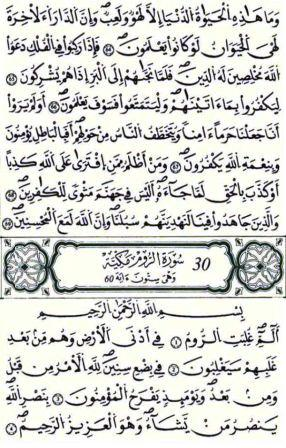 وَمَا هَٰذِهِ الْحَيَوٰةُ الدُّنْيَا إِلَّا لَهْوٌ وَلَعِبٌ وَإِنَّ الدَّارَ اَلَاخِرَةَ
لَهِيَ الْحَيَوَانُ لَوْ كَانُوا يَعْلَمُونَ فَإِذَا رَكِبُوا فِي الْفُلْكِ دَعَوُا
اللَّهَ مُخْلِصِينَ لَهُ الدِّينَ فَلَمَّا نَجَّىٰهُمْ إِلَى الْبَرِّ إِذَا هُمْ يُشْرِكُونَ
لِيَكْفُرُوا بِمَا ءَاتَيْنَٰهُمْ وَلِيَتَمَتَّعُوا فَسَوْفَ يَعْلَمُونَ اَوَلَمْ يَرَوَا
اَنَّا جَعَلْنَا حَرَماً اٰمِناً وَيُتَخَطَّفُ النَّاسُ مِنْ حَوْلِهِمُ أَفَبِالْبَٰطِلِ يُومِنُونَ
وَبِنِعْمَةِ اللَّهِ يَكْفُرُونَ وَمَنَ اَظْلَمُ مِمَّنِ افْتَرَىٰ عَلَى اللَّهِ كَذِباً
اَوْ كَذَّبَ بِالْحَقِّ لَمَّا جَاءَهُ أَلَيْسَ فِي جَهَنَّمَ مَثْوىً لِلْكٰفِرِينَ
وَالَّذِينَ جَٰهَدُوا فِينَا لَنَهْدِيَنَّهُمْ سُبُلَنَا وَإِنَّ اللَّهَ لَمَعَ الْمُحْسِنِينَ
30 سُورَةُ الرُّومِ مَكِّيَّةٌ
وَهِيَ سِتُّونَ ءَايَةً 60
بِسْمِ اللَّهِ الرَّحْمَٰنِ الرَّحِيمِ
أَلَمِّ غُلِبَتِ الرُّومُ فِي أَدْنَى الْأَرْضِ وَهُمْ مِنْ بَعْدِ
غَلَبِهِمْ سَيَغْلِبُونَ فِي بِضْعِ سِنِينَ لِلَّهِ الْأَمْرُ مِنْ قَبْلُ
وَمِنْ بَعْدُ وَيَوْمَئِذٍ يَفْرَحُ الْمُؤْمِنُونَ بِنَصْرِ اللَّهِ
يَنْصُرُ مَنْ يَشَاءُ وَهُوَ الْعَزِيزُ الرَّحِيمُ